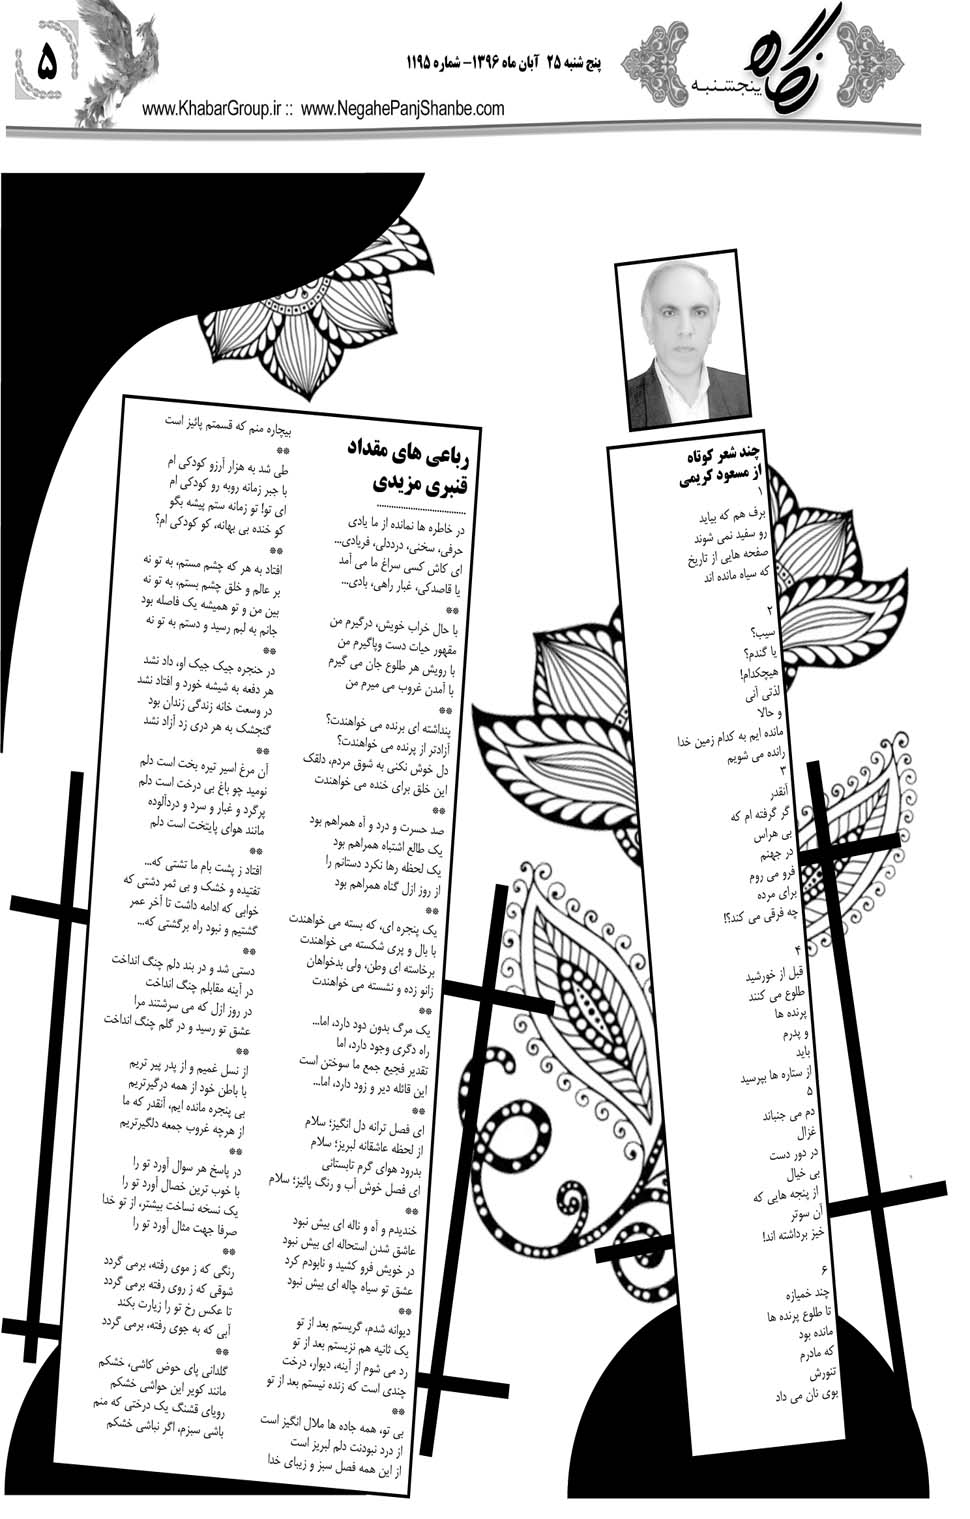 نگاه
پنجشنبه
پنج شنبه ۲۵ آبان ماه ۱۳۹۶- شماره ۱۱۹۵
www.KhabarGroup.ir :: www.NegahePanjShanbe.com
۵
چند شعر کوتاه
از مسعود کریمی
۱
برف هم که بیاید
رو سفید نمی شوند
صفحه هایی از تاریخ
که سیاه مانده اند
۲
سیب؟
یا گندم؟
هیچکدام!
لذتی آنی
و حالا
مانده ایم به کدام زمین خدا
رانده می شویم
۳
آنقدر
گر گرفته ام که
بی هراس
در جهنم
فرو می روم
برای مرده
چه فرقی می کند؟!
۴
قبل از خورشید
طلوع می کنند
پرنده ها
و پدرم
باید
از ستاره ها بپرسید
۵
دم می جنباند
غزال
در دور دست
بی خیال
از پنجه هایی که
آن سوتر
خیز برداشته اند!
۶
چند خمیازه
تا طلوع پرنده ها
مانده بود
که مادرم
تنورش
بوی نان می داد
رباعی های مقداد
قنبری مزیدی
در خاطره ها نمانده از ما یادی
حرفی، سخنی، درددلی، فریادی...
ای کاش کسی سراغ ما می آمد
یا قاصدکی، غبار راهی، بادی...
**
با حال خراب خویش، درگیرم من
مقهور حیات دست وپاگیرم من
با رویش هر طلوع جان می گیرم
با آمدن غروب می میرم من
**
پنداشته ای برنده می خواهندت؟
آزادتر از پرنده می خواهندت؟
دل خوش نکنی به شوق مردم، دلقک
این خلق برای خنده می خواهندت
**
صد حسرت و درد و آه همراهم بود
یک طالع اشتباه همراهم بود
یک لحظه رها نکرد دستانم را
از روز ازل گناه همراهم بود
**
یک پنجره ای، که بسته می خواهندت
با بال و پری شکسته می خواهندت
برخاسته ای وطن، ولی بدخواهان
زانو زده و نشسته می خواهندت
**
یک مرگ بدون دود دارد، اما...
راه دگری وجود دارد، اما
تقدیر فجیع جمع ما سوختن است
این قائله دیر و زود دارد، اما...
**
ای فصل ترانه دل انگیز؛ سلام
از لحظه عاشقانه لبریز؛ سلام
بدرود هوای گرم تابستانی
ای فصل خوش آب و رنگ پائیز؛ سلام
**
خندیدم و آه و ناله ای بیش نبود
عاشق شدن استحاله ای بیش نبود
در خویش فرو کشید و نابودم کرد
عشق تو سیاه چاله ای بیش نبود
**
دیوانه شدم، گریستم بعد از تو
یک ثانیه هم نزیستم بعد از تو
رد می شوم از آینه، دیوار، درخت
چندی است که زنده نیستم بعد از تو
**
بی تو، همه جاده ها ملال انگیز است
از درد نبودنت دلم لبریز است
از این همه فصل سبز و زیبای خدا
بیچاره منم که قسمتم پائیز است
**
طی شد به هزار آرزو کودکی ام
با جبر زمانه روبه رو کودکی ام
ای تو! تو زمانه ستم پیشه بگو
کو خنده بی بهانه، کو کودکی ام؟
**
افتاد به هر که چشم مستم، به تو نه
بر عالم و خلق چشم بستم، به تو نه
بین من و تو همیشه یک فاصله بود
جانم به لبم رسید و دستم به تو نه
**
در حنجره جیک جیک او، داد نشد
هر دفعه به شیشه خورد و افتاد نشد
در وسعت خانه زندگی زندان بود
گنجشک به هر دری زد آزاد نشد
**
آن مرغ اسیر تیره بخت است دلم
نومید چو باغ بی درخت است دلم
پرگرد و غبار و سرد و دردآلوده
مانند هوای پایتخت است دلم
**
افتاد ز پشت بام ما تشتی که...
تفتیده و خشک و بی ثمر دشتی که
خوابی که ادامه داشت تا آخر عمر
گشتیم و نبود راه برگشتی که...
**
دستی شد و در بند دلم چنگ انداخت
در آینه مقابلم چنگ انداخت
در روز ازل که می سرشتند مرا
عشق تو رسید و در گلم چنگ انداخت
**
از نسل غمیم و از پدر پیر تریم
با باطن خود از همه درگیرتریم
بی پنجره مانده ایم، آنقدر که ما
از هرچه غروب جمعه دلگیرتریم
**
در پاسخ هر سوال آورد تو را
با خوب ترین خصال آورد تو را
یک نسخه نساخت بیشتر، از تو خدا
صرفا جهت مثال آورد تو را
**
رنگی که ز موی رفته، برمی گردد
شوقی که ز روی رفته برمی گردد
تا عکس رخ تو را زیارت بکند
آبی که به جوی رفته، برمی گردد
**
گلدانی پای حوض کاشی، خشکم
مانند کویر این حواشی خشکم
رویای قشنگ یک درختی که منم
باشی سبزم، اگر نباشی خشکم